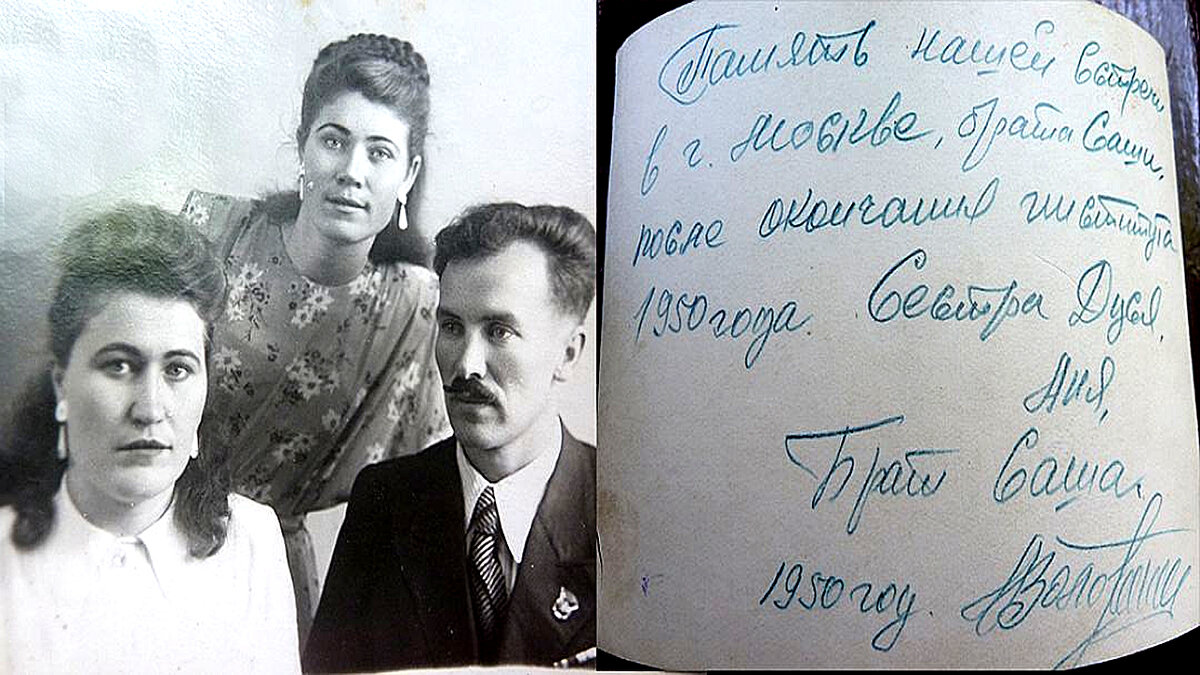 Память нашей встречи
в г. Москве, брата Саши,
после окончания института
1950 года. Сестра Дуся,
Аня,
Брат Саша.
1950 год.